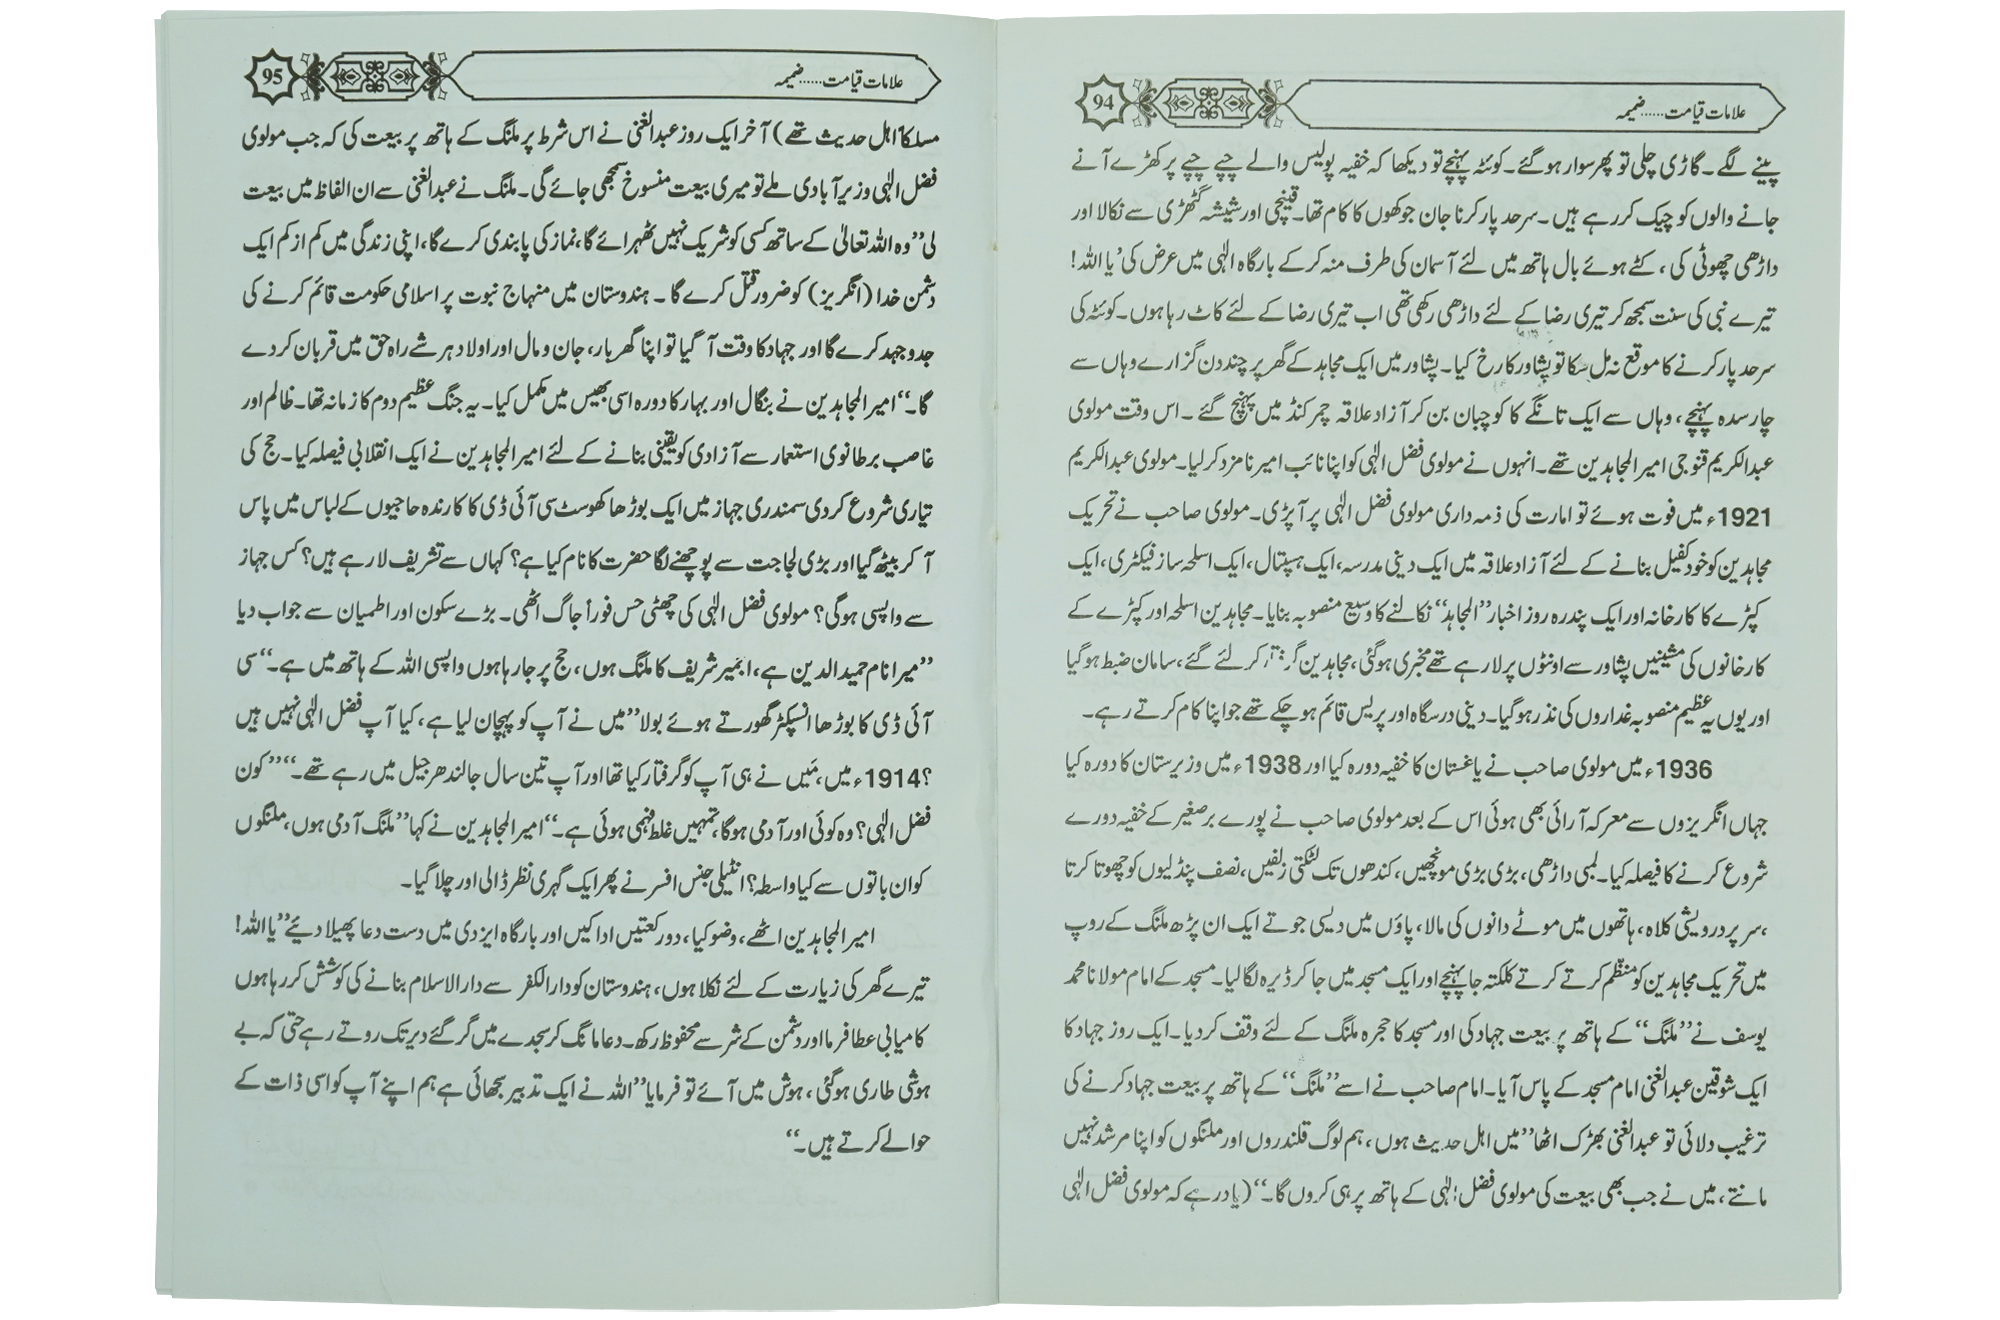 علامات قیامت......ضمیمہ
94
پینے لگے۔ گاڑی چلی تو پھر سوار ہوگئے۔ کوئٹہ پہنچے تو دیکھا کہ خفیہ پولیس والے چپے چپے پر کھڑے آنے
جانے والوں کو چیک کر رہے ہیں۔ سرحد پار کرنا جان جوکھوں کا کام تھا۔ قینچی اور شیشہ گٹھڑی سے نکالا اور
داڑھی چھوٹی کی، کٹے ہوئے بال ہاتھ میں لئے آسمان کی طرف منہ کرکے بارگاہ الٰہی میں عرض کی ’یا اللہ!
تیرے نبی کی سنت سمجھ کر تیری رضا کے لئے داڑھی رکھی تھی اب تیری رضا کے لئے کاٹ رہا ہوں۔ کوئٹہ کی
سرحد پار کرنے کا موقع نہ مل سکا تو پشاور کا رخ کیا۔ پشاور میں ایک مجاہد کے گھر پر چند دن گزارے وہاں سے
چارسدہ پہنچے، وہاں سے ایک تانگے کا کوچبان بن کر آزاد علاقہ چمرکنڈ میں پہنچ گئے۔ اس وقت مولوی
عبدالکریم قنوجی امیر المجاہدین تھے۔ انہوں نے مولوی فضل الٰہی کو اپنا نائب امیر نامزد کرلیا۔ مولوی عبدالکریم
1921ء میں فوت ہوئے تو امارت کی ذمہ داری مولوی فضل الٰہی پر آپڑی۔ مولوی صاحب نے تحریک
مجاہدین کو خود کفیل بنانے کے لئے آزاد علاقہ میں ایک دینی مدرسہ، ایک ہسپتال، ایک اسلحہ ساز فیکٹری، ایک
کپڑے کا کارخانہ اور ایک پندرہ روز اخبار ’’المجاہد‘‘ نکالنے کا وسیع منصوبہ بنایا۔ مجاہدین اسلحہ اور کپڑے کے
کارخانوں کی مشینیں پشاور سے اونٹوں پر لارہے تھے مخبری ہوگئی، مجاہدین گرفتار کرلئے گئے، سامان ضبط ہوگیا
اور یوں یہ عظیم منصوبہ غداروں کی نذر ہوگیا۔ دینی درسگاہ اور پریس قائم ہوچکے تھے جو اپنا کام کرتے رہے۔
1936ء میں مولوی صاحب نے یاغستان کا خفیہ دورہ کیا اور 1938ء میں وزیرستان کا دورہ کیا
جہاں انگریزوں سے معرکہ آرائی بھی ہوئی اس کے بعد مولوی صاحب نے پورے برصغیر کے خفیہ دورے
شروع کرنے کا فیصلہ کیا۔ لمبی داڑھی، بڑی بڑی مونچھیں، کندھوں تک لٹکتی زلفیں، نصف پنڈلیوں کو چھوتا کرتا
،سر پر درویشی کلاہ، ہاتھوں میں موٹے دانوں کی مالا، پاؤں میں دیسی جوتے ایک ان پڑھ ملنگ کے روپ
میں تحریک مجاہدین کو منظّم کرتے کرتے کلکتہ جا پہنچے اور ایک مسجد میں جاکر ڈیرہ لگا لیا۔ مسجد کے امام مولانا محمد
یوسف نے ’’ملنگ‘‘ کے ہاتھ پر بیعت جہاد کی اور مسجد کا حجرہ ملنگ کے لئے وقف کردیا۔ ایک روز جہاد کا
ایک شوقین عبدالغنی امام مسجد کے پاس آیا۔ امام صاحب نے اسے ’’ملنگ‘‘ کے ہاتھ پر بیعت جہاد کرنے کی
ترغیب دلائی تو عبدالغنی بھڑک اٹھا ’’میں اہل حدیث ہوں، ہم لوگ قلندروں اور ملنگوں کو اپنا مرشد نہیں
مانتے، میں نے جب بھی بیعت کی مولوی فضل الٰہی کے ہاتھ پر ہی کروں گا۔‘‘ (یاد رہے کہ مولوی فضل الٰہی
علامات قیامت......ضمیمہ
95
مسلکاً اہل حدیث تھے) آخر ایک روز عبدالغنی نے اس شرط پر ملنگ کے ہاتھ پر بیعت کی کہ جب مولوی
فضل الٰہی وزیر آبادی ملے تو میری بیعت منسوخ سمجھی جائے گی۔ ملنگ نے عبدالغنی سے ان الفاظ میں بیعت
لی ’’وہ اللہ تعالیٰ کے ساتھ کسی کو شریک نہیں ٹھہرائے گا، نماز کی پابندی کرے گا، اپنی زندگی میں کم از کم ایک
دشمن خدا (انگریز) کو ضرور قتل کرے گا۔ ہندوستان میں منہاج نبوت پر اسلامی حکومت قائم کرنے کی
جدوجہد کرے گا اور جہاد کا وقت آگیا تو اپنا گھر بار، جان و مال اور اولاد ہر شے راہ حق میں قربان کردے
گا۔‘‘ امیر المجاہدین نے بنگال اور بہار کا دورہ اسی بھیس میں مکمل کیا۔ یہ جنگ عظیم دوم کا زمانہ تھا۔ ظالم اور
غاصب برطانوی استعمار سے آزادی کو یقینی بنانے کے لئے امیر المجاہدین نے ایک انقلابی فیصلہ کیا۔ حج کی
تیاری شروع کردی سمندری جہاز میں ایک بوڑھا کھوسٹ سی آئی ڈی کا کارندہ حاجیوں کے لباس میں پاس
آکر بیٹھ گیا اور بڑی لجاجت سے پوچھنے لگا حضرت کا نام کیا ہے؟ کہاں سے تشریف لارہے ہیں؟ کس جہاز
سے واپسی ہوگی؟ مولوی فضل الٰہی کی چھٹی حس فوراً جاگ اٹھی۔ بڑے سکون اور اطمیان سے جواب دیا
’’میرا نام حمید الدین ہے، اجمیر شریف کا ملنگ ہوں، حج پر جارہا ہوں واپسی اللہ کے ہاتھ میں ہے۔‘‘ سی
آئی ڈی کا بوڑھا انسپکٹر گھورتے ہوئے بولا ’’میں نے آپ کو پہچان لیا ہے، کیا آپ فضل الٰہی نہیں ہیں
؟ 1914ء میں، مَیں نے ہی آپ کو گرفتار کیا تھا اور آپ تین سال جالندھر جیل میں رہے تھے۔‘‘ ’’کون
فضل الٰہی؟ وہ کوئی اور آدمی ہوگا، تمہیں غلط فہمی ہوئی ہے۔‘‘ امیر المجاہدین نے کہا ’’ملنگ آدمی ہوں، ملنگوں
کو ان باتوں سے کیا واسطہ؟ انٹیلی جنس افسر نے پھر ایک گہری نظر ڈالی اور چلا گیا۔
امیر المجاہدین اٹھے، وضو کیا، دو رکعتیں ادا کیں اور بارگاہ ایزدی میں دست دعا پھیلا دیئے ’’یا اللہ!
تیرے گھر کی زیارت کے لئے نکلا ہوں، ہندوستان کو دارالکفر سے دارالاسلام بنانے کی کوشش کررہا ہوں
کامیابی عطا فرما اور دشمن کے شر سے محفوظ رکھ۔ دعا مانگ کر سجدے میں گر گئے دیر تک روتے رہے حتی کہ بے
ہوشی طاری ہوگئی، ہوش میں آئے تو فرمایا ’’اللہ نے ایک تدبیر سجھائی ہے ہم اپنے آپ کو اسی ذات کے
حوالے کرتے ہیں۔‘‘